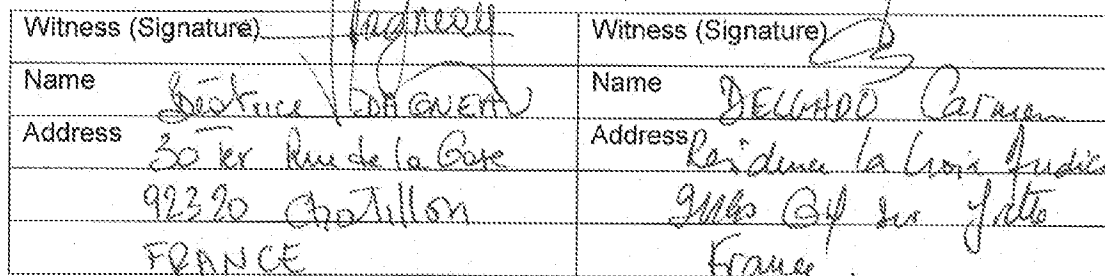 Witness (Signature) Witness (Signature)
Name Béatrice Name DELGADO Carmen
Address 30 Ter Rue de la Gare Address Residence la Croix
92320 Chatillon Gif sur Yvette
FRANCE France.